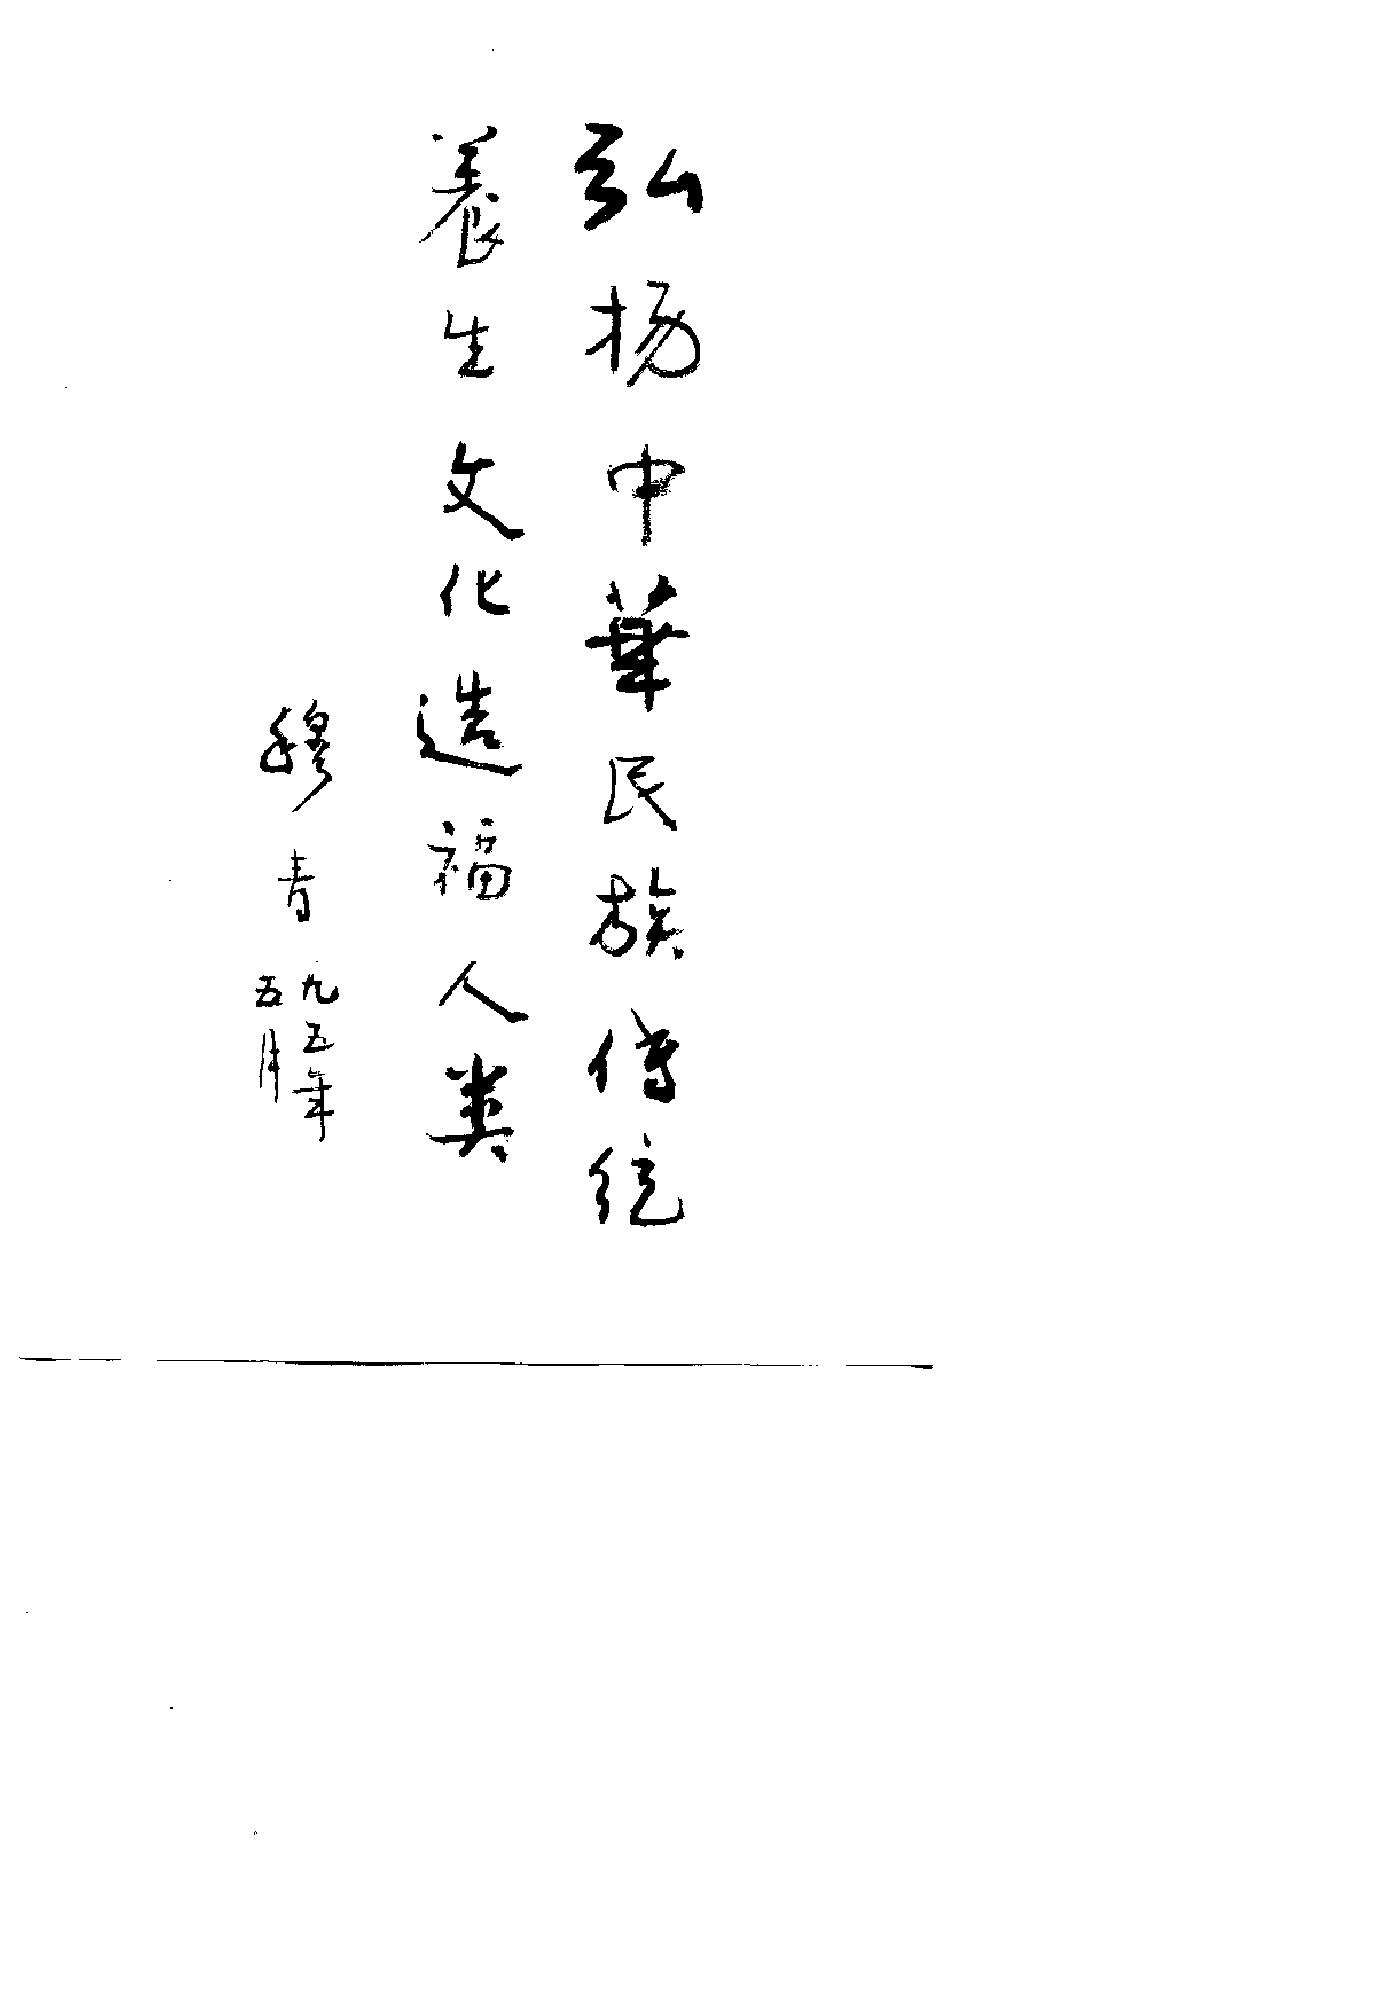 弘扬中華民族传统
养生文化造福人类
穆青
九五年
五月